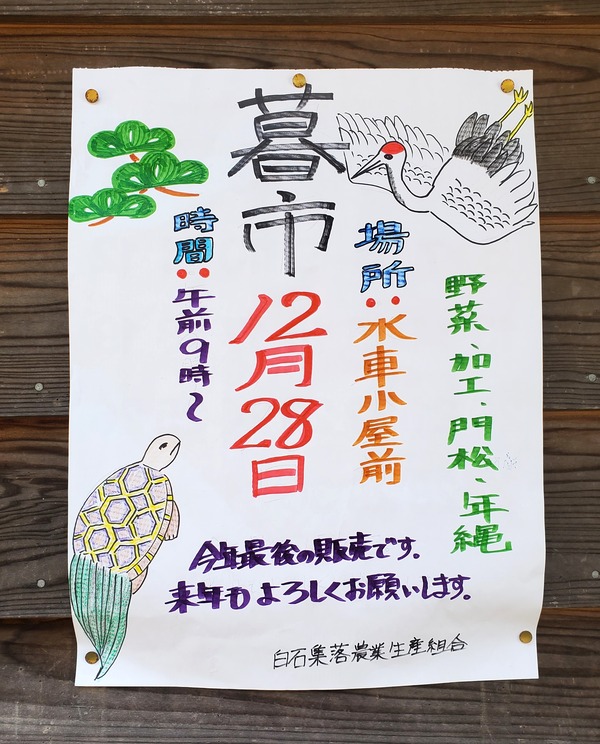 野菜、加工、門松、年縄
場所:水車小屋前
暮市
12月28日
時間:午前9時〜
今年最後の販売です。
来年もよろしくお願いします。
白石集落農業生産組合